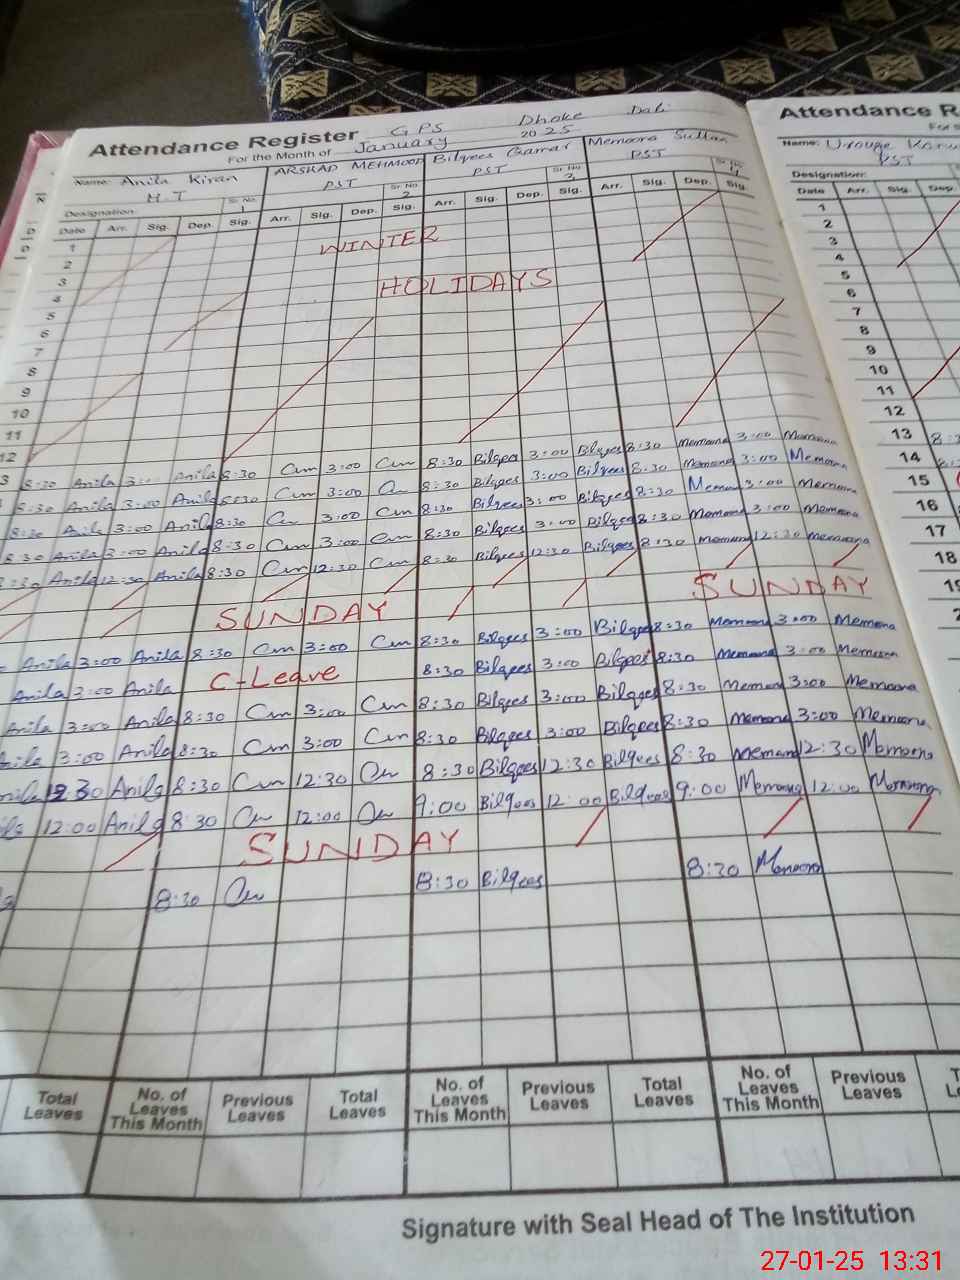 Attendance Register GPS Dhoke Dali
For the Month of January 2025
Name: Anila Kiran ARSHAD MEHMOOD Bilqees Qamar Memoona Sultan
H.T PST PST PST
Designation: Sr. No. 1 Sr. No. 2 Sr. No. 3 Sr. No. 4
Date Arr. Sig. Dep. Sig. Arr. Sig. Dep. Sig. Arr. Sig. Dep. Sig. Arr. Sig. Dep. Sig.
1 WINTER
2
3 HOLIDAYS
4
5
6
7
8
9
10
11
12
3 8:30 Anila 3:00 Anila 8:30 3:00 8:30 Bilqees 3:00 Bilqees 8:30 Memoona 3:00 Memoona
8:30 Anila 3:00 Anila 8:30 3:00 8:30 Bilqees 3:00 Bilqees 8:30 Memoona 3:00 Memoona
8:30 Anila 3:00 Anila 8:30 3:00 8:30 Bilqees 3:00 Bilqees 8:30 Memoona 3:00 Memoona
8:30 Anila 3:00 Anila 8:30 3:00 8:30 Bilqees 3:00 Bilqees 8:30 Memoona 3:00 Memoona
8:30 Anila 12:30 Anila 8:30 12:30 8:30 Bilqees 12:30 Bilqees 8:30 Memoona 12:30 Memoona
SUNDAY SUNDAY
Anila 3:00 Anila 8:30 3:00 8:30 Bilqees 3:00 Bilqees 8:30 Memoona 3:00 Memoona
Anila 3:00 Anila C-Leave 8:30 Bilqees 3:00 Bilqees 8:30 Memoona 3:00 Memoona
Anila 3:00 Anila 8:30 3:00 8:30 Bilqees 3:00 Bilqees 8:30 Memoona 3:00 Memoona
3:00 Anila 8:30 3:00 8:30 Bilqees 3:00 Bilqees 8:30 Memoona 3:00 Memoona
12:30 Anila 8:30 12:30 8:30 Bilqees 12:30 Bilqees 8:30 Memoona 12:30 Memoona
12:00 Anila 8:30 12:00 9:00 Bilqees 12:00 Bilqees 9:00 Memoona 12:00 Memoona
SUNDAY
8:30 8:30 Bilqees 8:30 Memoona
Total Leaves No. of Leaves This Month Previous Leaves Total Leaves No. of Leaves This Month Previous Leaves Total Leaves No. of Leaves This Month Previous Leaves
Signature with Seal Head of The Institution
Attendance R
For
Name: Urouge
PST
Designation:
Date Arr. Sig. Dep.
1
2
3
4
5
6
7
8
9
10
11
12
13
14
15
16
17
18
19
27-01-25 13:31